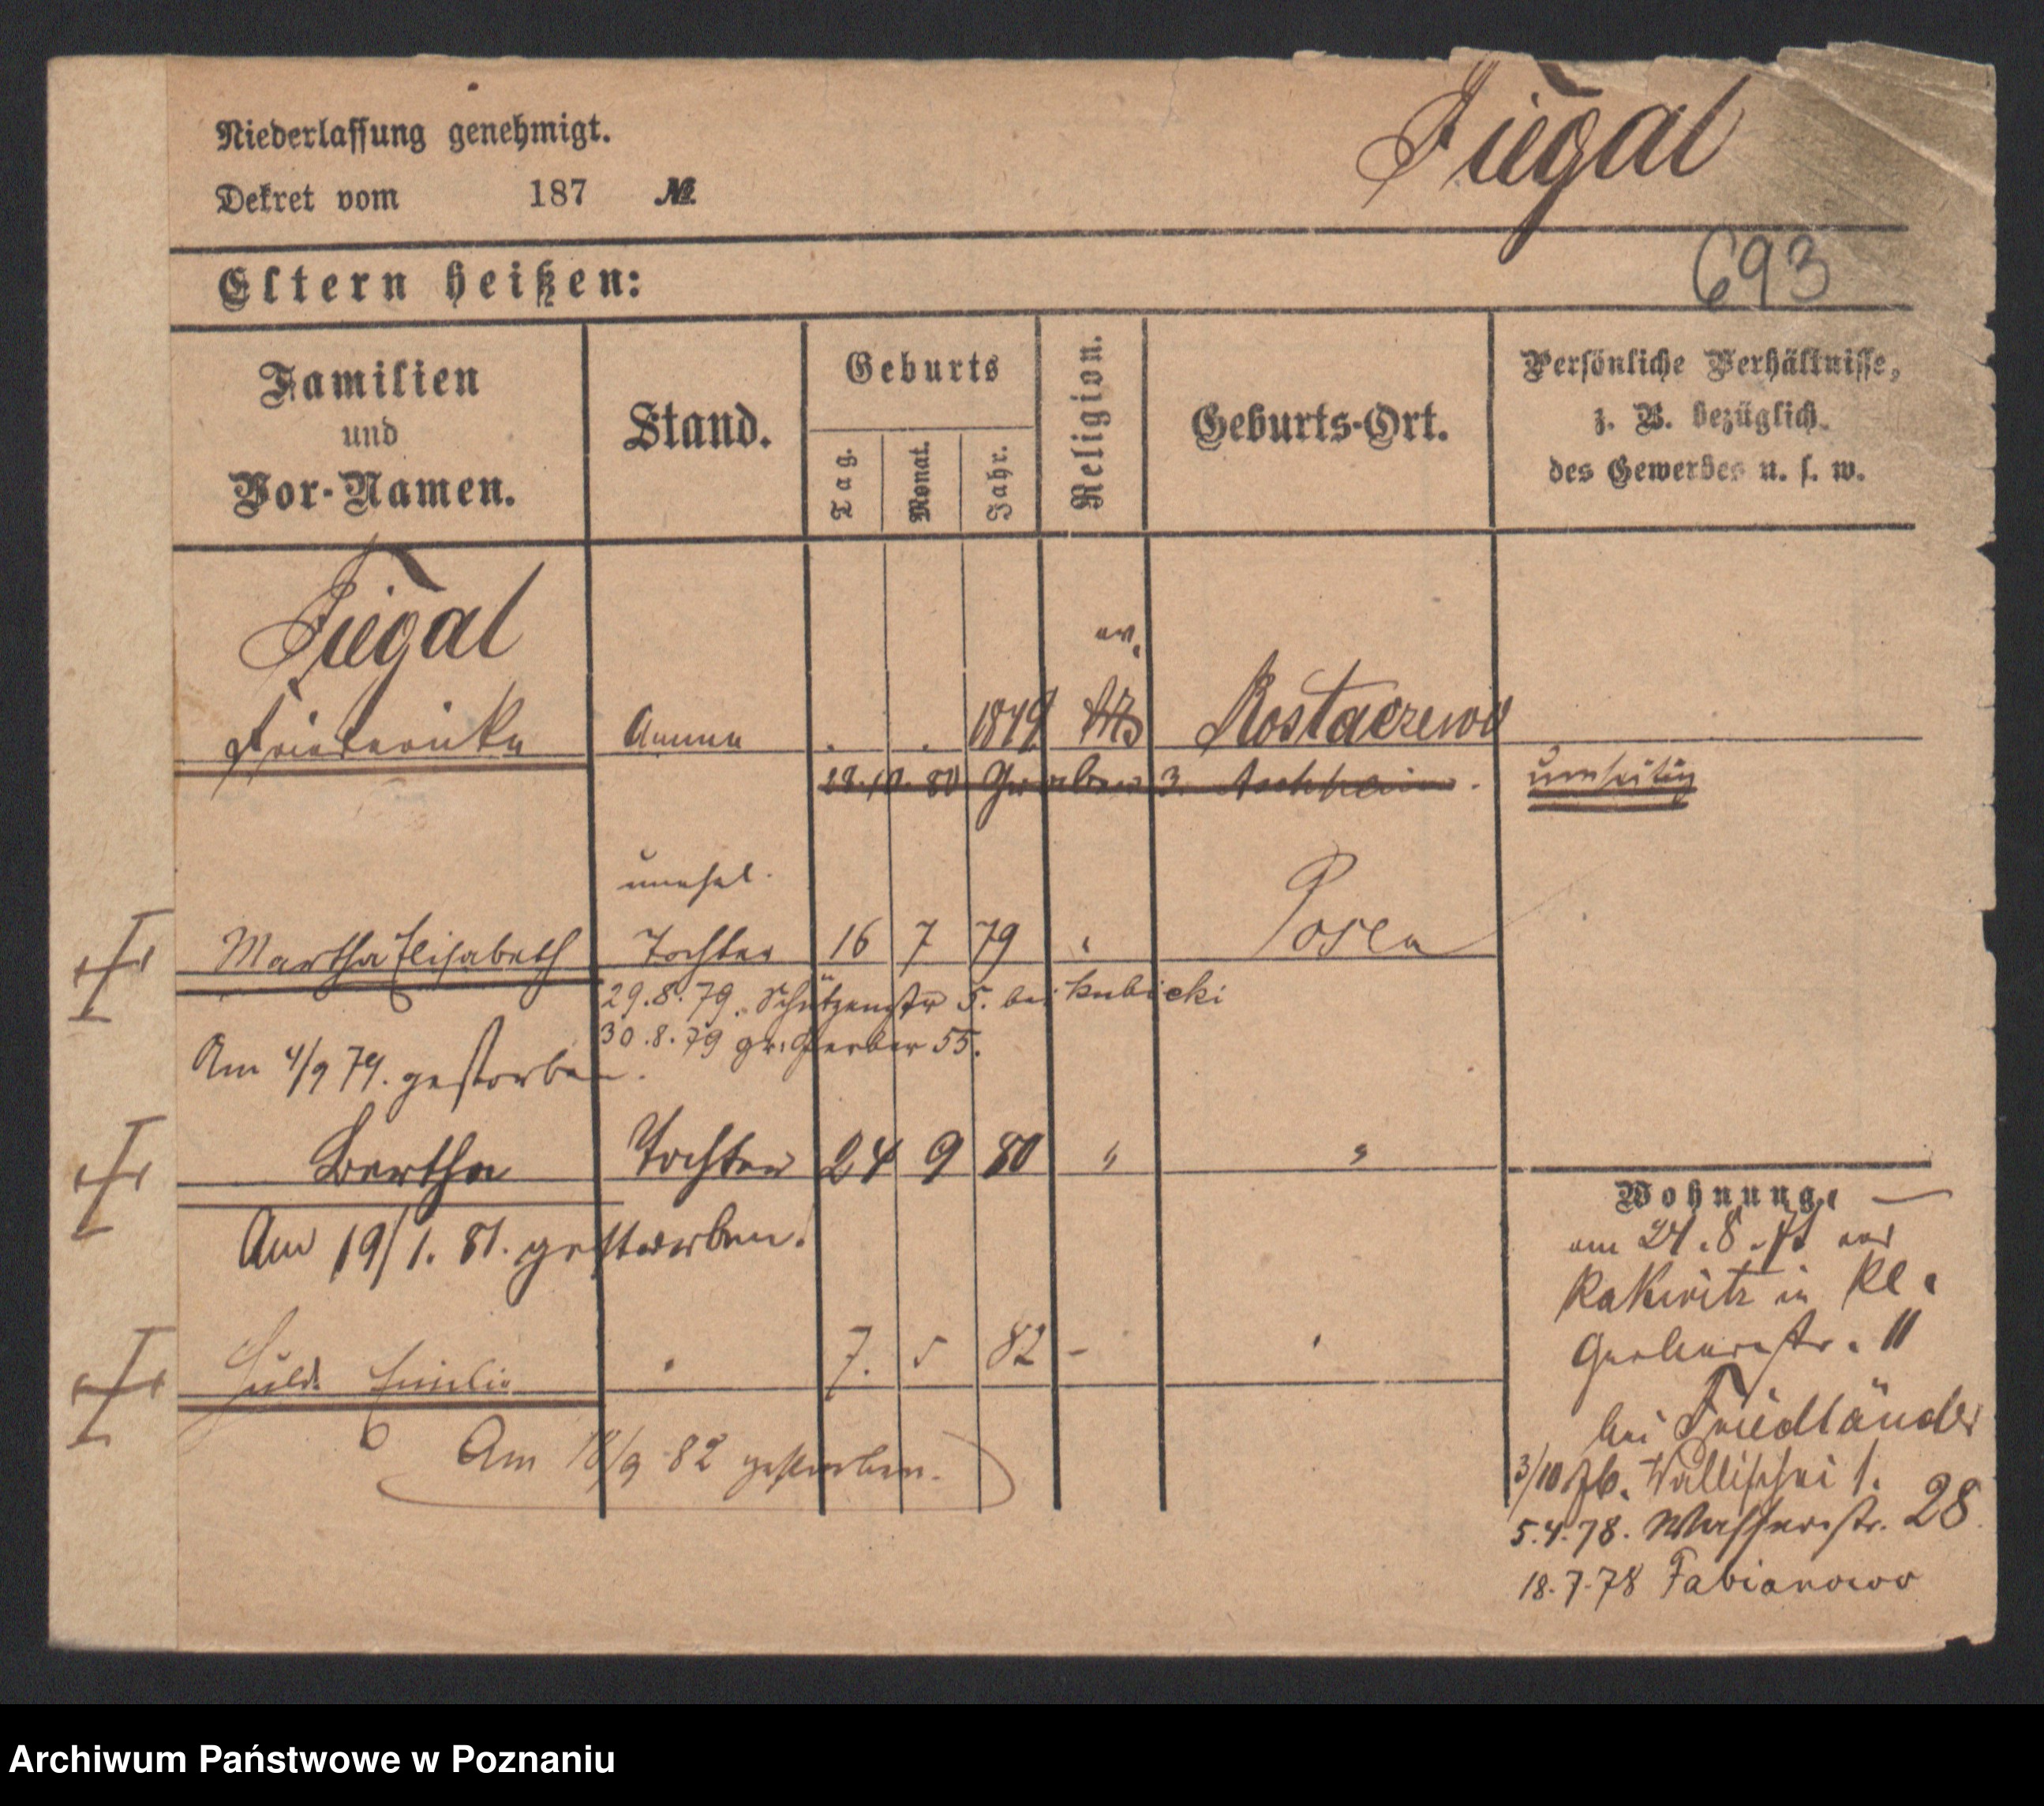 Niederlassung genehmigt.
Dekret vom 187 №
Fiegal
693
Eltern heißen:
Familien und Vor-Namen.
Stand.
Geburts
Tag.
Monat.
Jahr.
Religion.
Geburts-Ort.
Persönliche Verhältnisse,
z. B. bezüglich
des Gewerbes u. s. w.
Fiegal
ev.
Friederike Amme . . 1849 Rostaczewo
28.10.80 Gerber 3. Aschheim.
umseitig
unehel.
Martha Elisabeth Tochter 16 7 79 " Posen
29.8.79. Schützenstr 5. bei Kubicki
30.8.79 gr. Gerber 55.
Am 4/9 79. gestorben.
Bertha Tochter 24 9 80 " "
Am 19/1. 81. gestorben.
Hulda Emilie " 7. 5 82 - "
Am 18/9 82 gestorben.
Wohnung.
am 24.8. aus
Rakwitz in Kl.
Gerberstr. 11
bei Friedländer
3/10 76. Wallischei 1.
5.4.78. Wasserstr. 28
18.7.78 Fabianowo
Archiwum Państwowe w Poznaniu